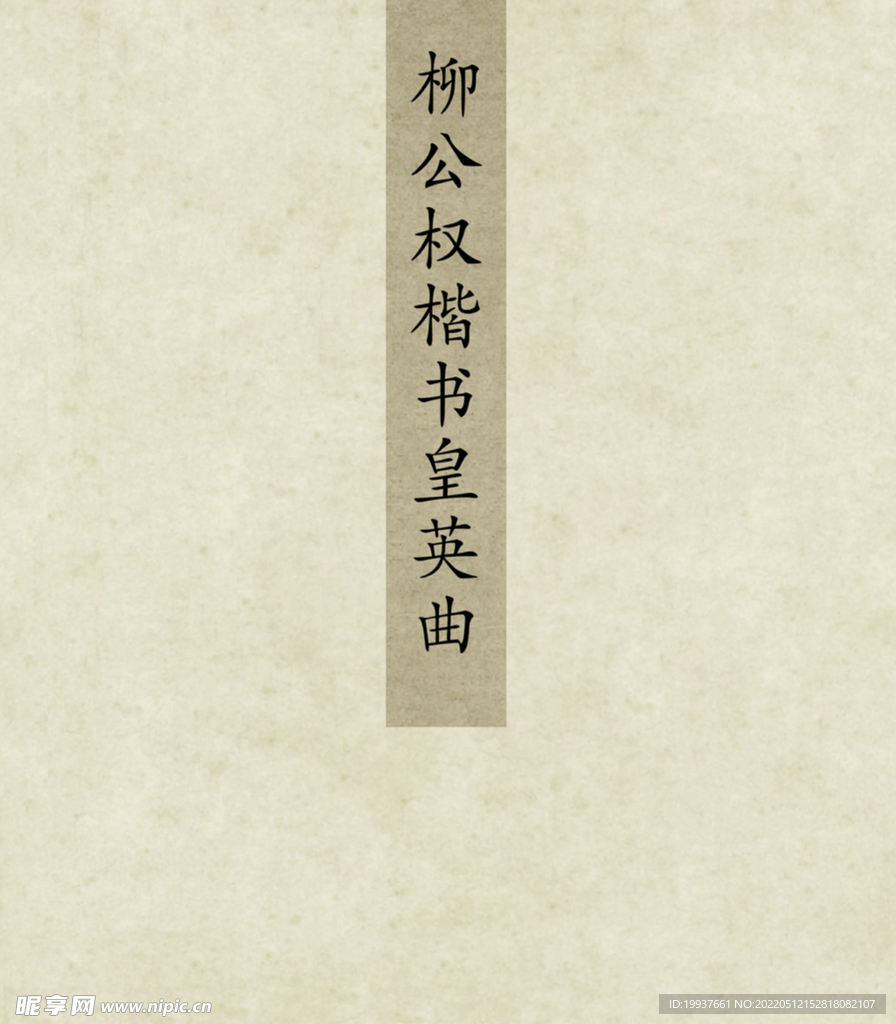 柳公权楷书皇英曲
昵享网 www.nipic.cn
ID:19937661 NO:20220512152818082107